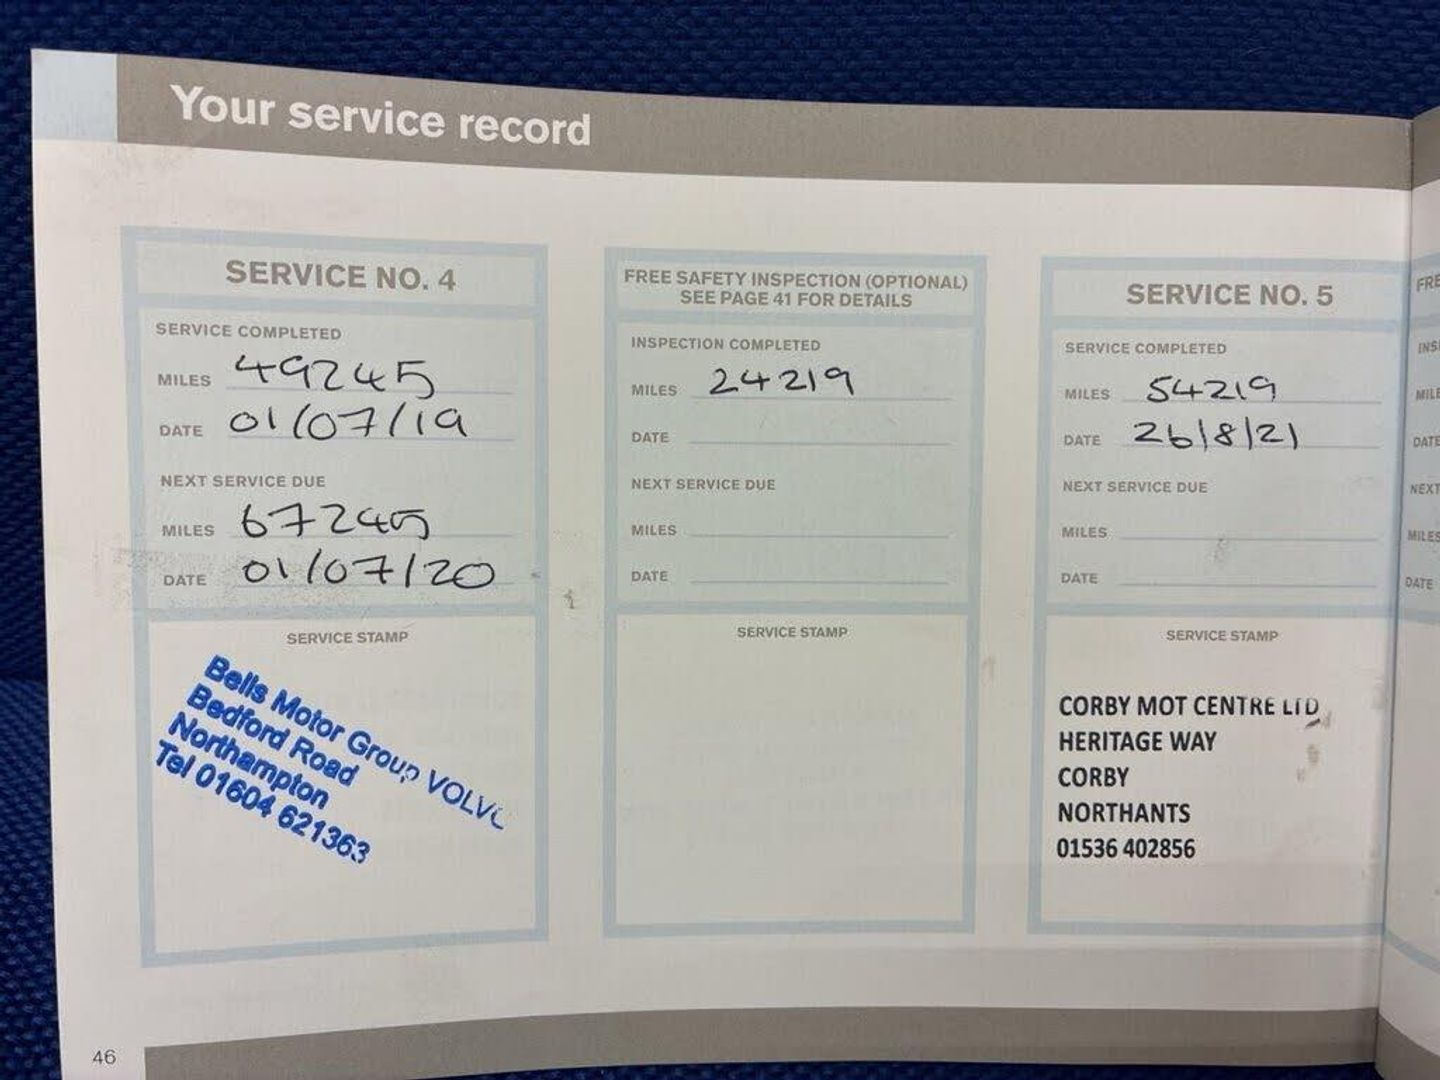 Your service record
SERVICE NO. 4
SERVICE COMPLETED
MILES 49245
DATE 01/07/19
NEXT SERVICE DUE
MILES 67245
DATE 01/07/20
SERVICE STAMP
Bells Motor Group VOLVO
Bedford Road
Northampton
Tel 01604 621363
FREE SAFETY INSPECTION (OPTIONAL)
SEE PAGE 41 FOR DETAILS
INSPECTION COMPLETED
MILES 24219
DATE
NEXT SERVICE DUE
MILES
DATE
SERVICE STAMP
SERVICE NO. 5
SERVICE COMPLETED
MILES 54219
DATE 26/8/21
NEXT SERVICE DUE
MILES
DATE
SERVICE STAMP
CORBY MOT CENTRE LTD
HERITAGE WAY
CORBY
NORTHANTS
01536 402856
FRE
INS
MILE
DATE
NEXT
MILES
DATE
46